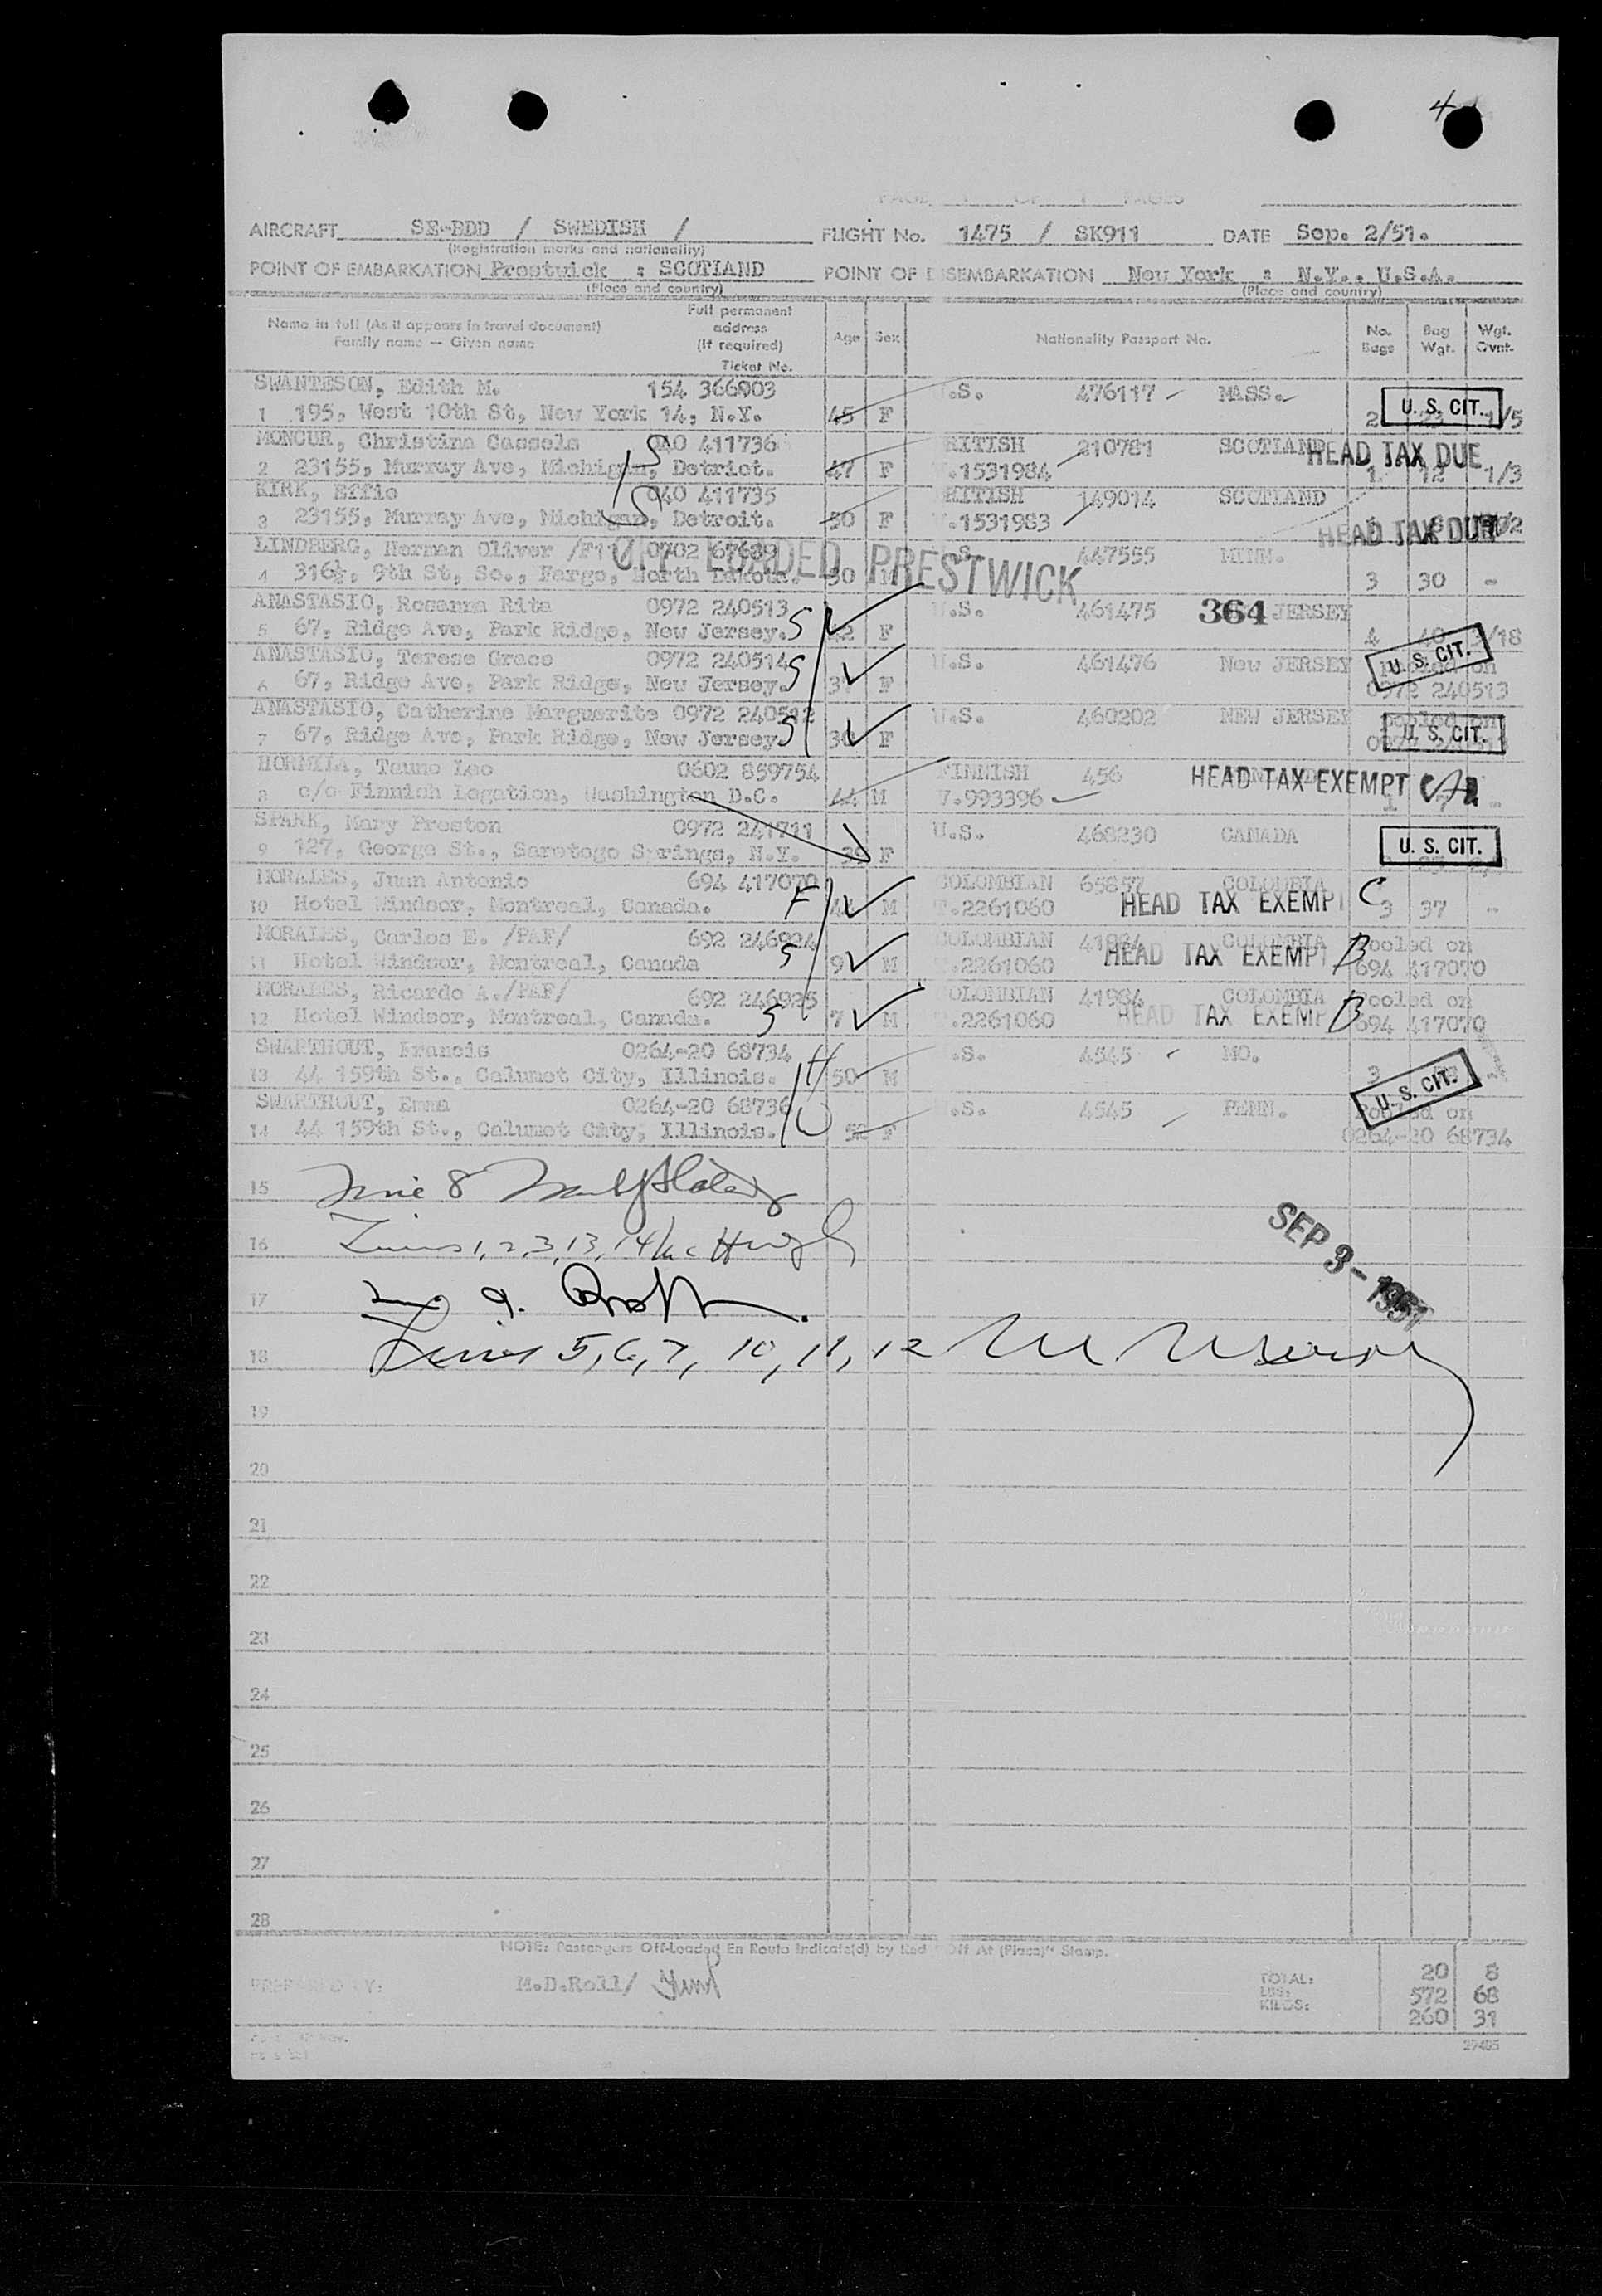 4
PAGE 1 OF 1 PAGES
AIRCRAFT SE-BDD / SWEDISH / FLIGHT No. 1475 / SK911 DATE Sep. 2/51.
(Registration marks and nationality)
POINT OF EMBARKATION Prestwick : SCOTLAND POINT OF DISEMBARKATION New York : N.Y., U.S.A.
(Place and country) (Place and country)
Name in full (As it appears in travel document) Family name — Given name Full permanent address (If required) Ticket No. Age Sex Nationality Passport No. No. Bags Bag Wgt. Wgt. Ovnt.
SWANTESON, Edith M. 154 366903 U.S. 476117 MASS. U. S. CIT.
1 195, West 10th St, New York 14, N.Y. 45 F 2 23 1/5
MONCUR, Christina Cassels 040 411736 BRITISH 210781 SCOTLAND HEAD TAX DUE
2 23155, Murray Ave, Michigan, Detriot. 47 F V.1531984 1 12 1/3
KIRK, Effie 040 411735 BRITISH 149014 SCOTLAND
3 23155, Murray Ave, Michigan, Detroit. 50 F V.1531983 HEAD TAX DUE
LINDBERG, Herman Oliver 0702 67689 U.S. 447555 MINN.
OFF LOADED PRESTWICK
4 316½, 9th St, So., Fargo, North Dakota. 30 M 3 30 -
ANASTASIO, Rosanna Rita 0972 240513 U.S. 461475 364 JERSEY
5 67, Ridge Ave, Park Ridge, New Jersey. S F 4 /18
ANASTASIO, Terese Grace 0972 240514 U.S. 461476 New JERSEY Pooled on U. S. CIT.
6 67, Ridge Ave, Park Ridge, New Jersey. S F 0972 240513
ANASTASIO, Catherine Marguerite 0972 240512 U.S. 460202 NEW JERSEY pooled on
7 67, Ridge Ave, Park Ridge, New Jersey S F U. S. CIT.
HORMILA, Tauno Leo 0602 859754 FINNISH 456 HEAD TAX EXEMPT
8 c/o Finnish Legation, Washington D.C. 44 M V.993396 1 7 -
SPARK, Mary Preston 0972 241711 U.S. 468230 CANADA U. S. CIT.
9 127, George St., Saratogo Springs, N.Y. 39 F
MORALES, Juan Antonio 694 417070 COLOMBIAN 65857 COLOMBIA
10 Hotel Windsor, Montreal, Canada. F M T.2261060 HEAD TAX EXEMPT C 3 37 -
MORALES, Carlos E. /PAF/ 692 246924 COLOMBIAN 41984 COLOMBIA Pooled on
11 Hotel Windsor, Montreal, Canada S 9 M T.2261060 HEAD TAX EXEMPT B 694 417070
MORALES, Ricardo A./PAF/ 692 246925 COLOMBIAN 41984 COLOMBIA Pooled on
12 Hotel Windsor, Montreal, Canada. S 7 M T.2261060 HEAD TAX EXEMPT B 694 417070
SWARTHOUT, Francis 0264-20 68734 U.S. 4545 MO.
13 44 159th St., Calumet City, Illinois. H 50 M 3
SWARTHOUT, Emma 0264-20 68736 U.S. 4545 PENN. U. S. CIT. Pooled on
14 44 159th St., Calumet City, Illinois. W 52 F 0264-20 68734
15 Line 8
16 Lines 1, 2, 3, 13, 14
SEP 3 - 1951
17
18 Lines 5, 6, 7, 10, 11, 12
19
20
21
22
23
24
25
26
27
28
NOTE: Passengers Off-Loaded En Route Indicate(d) by Red "Off At (Place)" Stamp.
PREPARED BY: M.D.Roll/
TOTAL: 20 8
LBS: 572 68
KILOS: 260 31
27405